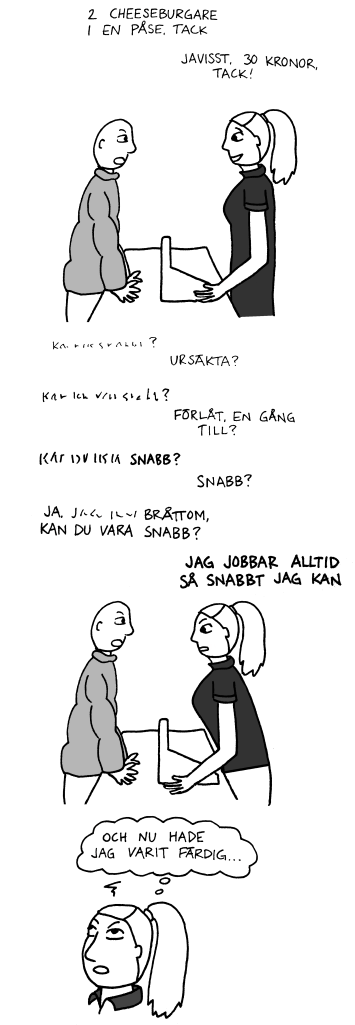 2 CHEESEBURGARE
I EN PÅSE, TACK
JAVISST, 30 KRONOR,
TACK!
URSÄKTA?
FÖRLÅT, EN GÅNG
TILL?
SNABB?
SNABB?
JA, BRÅTTOM,
KAN DU VARA SNABB?
JAG JOBBAR ALLTID
SÅ SNABBT JAG KAN
OCH NU HADE
JAG VARIT FÄRDIG...